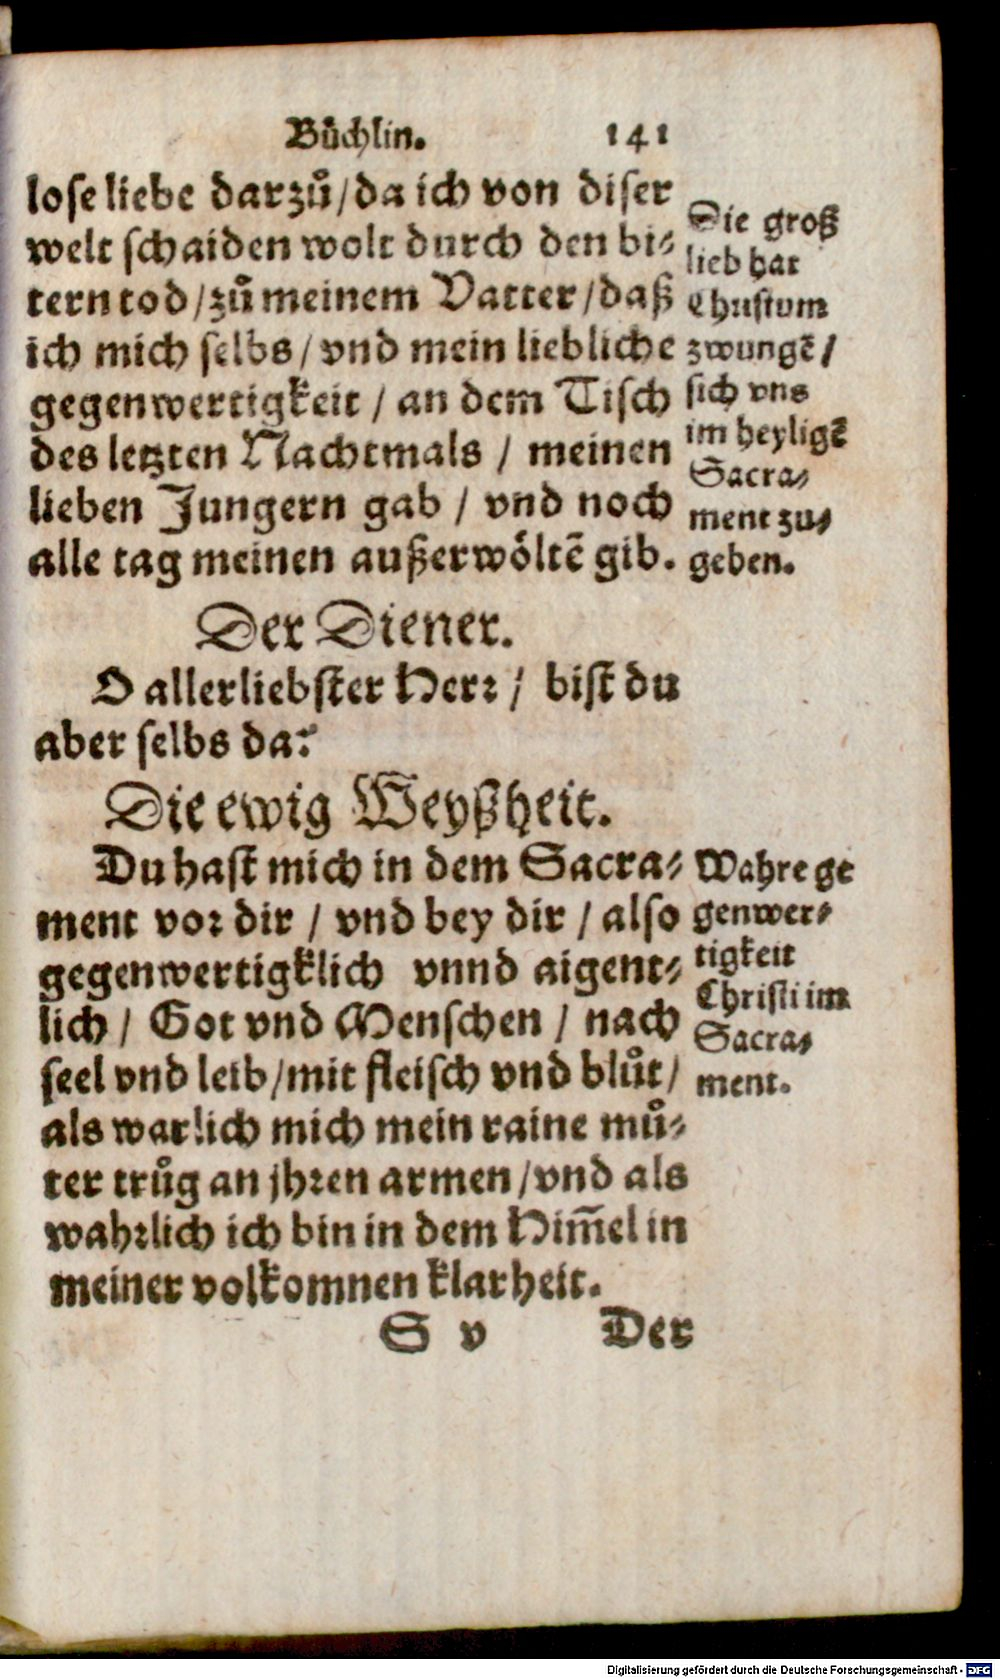 Bůchlin. 141
lose liebe darzů / da ich von diser
welt schaiden wolt durch den bi⸗
tern tod / zů meinem Vatter / daß
ich mich selbs / vnd mein liebliche
gegenwertigkeit / an dem Tisch
des letzten Nachtmals / meinen
lieben Jungern gab / vnd noch
alle tag meinen außerwöltẽ gib.
Die groß
lieb hat
Christum
zwungẽ /
sich vns
im heyligẽ
Sacra⸗
ment zu⸗
geben.
Der Diener.
O allerliebster Herr / bist du
aber selbs da?
Die ewig Weyßheit.
Du hast mich in dem Sacra⸗
ment vor dir / vnd bey dir / also
gegenwertigklich vnnd aigent⸗
lich / Got vnd Menschen / nach
seel vnd leib / mit fleisch vnd blůt /
als warlich mich mein raine mů⸗
ter trůg an jhren armen / vnd als
wahrlich ich bin in dem Him̃el in
meiner volkomnen klarheit.
Wahre ge
genwer⸗
tigkeit
Christi im
Sacra⸗
ment.
S v Der
Digitalisierung gefördert durch die Deutsche Forschungsgemeinschaft - DFG